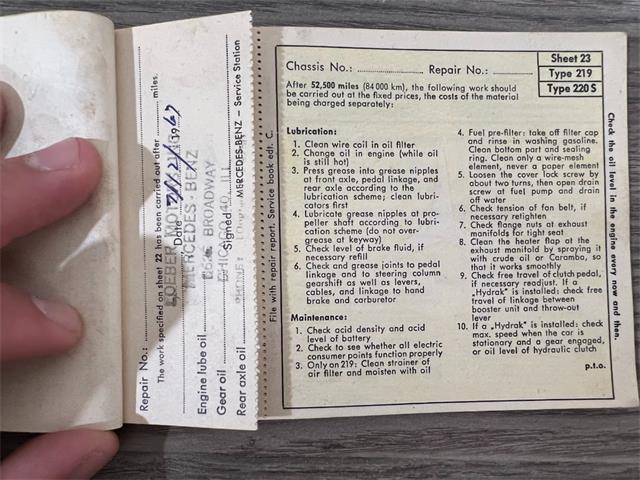 Repair No.:
The work specified on sheet 22 has been carried out after miles.
Date
LOEBER MOTORS
MERCEDES - BENZ
BROADWAY
CHICAGO 40, ILL.
Signed
MERCEDES-BENZ – Service Station
Engine lube oil
Gear oil
Rear axle oil
File with repair report. Service book edt. C.
Chassis No.: Repair No.:
Sheet 23
Type 219
Type 220 S
After 52,500 miles (84 000 km), the following work should
be carried out at the fixed prices, the costs of the material
being charged separately:
Lubrication:
1. Clean wire coil in oil filter
2. Change oil in engine (while oil
is still hot)
3. Press grease into grease nipples
at front axle, pedal linkage, and
rear axle according to the
lubrication scheme; clean lubri-
cators first
4. Lubricate grease nipples at pro-
peller shaft according to lubri-
cation scheme (do not over-
grease at keyway)
5. Check level of brake fluid, if
necessary refill
6. Check and grease joints to pedal
linkage and to steering column
gearshift as well as levers,
cables, and linkage to hand
brake and carburetor
Maintenance:
1. Check acid density and acid
level of battery
2. Check to see whether all electric
consumer points function properly
3. Only on 219: Clean strainer of
air filter and moisten with oil
4. Fuel pre-filter: take off filter cap
and rinse in washing gasoline.
Clean bottom part and sealing
ring. Clean only a wire-mesh
element, never a paper element
5. Loosen the cover lock screw by
about two turns, then open drain
screw at fuel pump and drain
off water
6. Check tension of fan belt, if
necessary relighten
7. Check flange nuts at exhaust
manifolds for tight seat
8. Clean the heater flap at the
exhaust manifold by spraying it
with crude oil or Caramba, so
that it works smoothly
9. Check free travel of clutch pedal,
if necessary readjust. If a
„Hydrak" is installed: check free
travel of linkage between
booster unit and throw-out
lever
10. If a „Hydrak" is installed: check
max. speed when the car is
stationary and a gear engaged,
or oil level of hydraulic clutch
p.t.o.
Check the oil level in the engine every now and then.